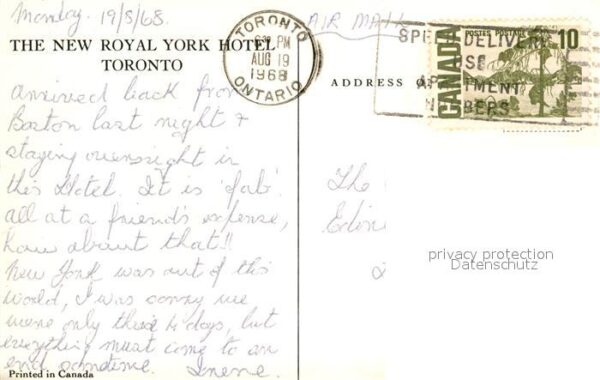 Monday. 19/8/68.
THE NEW ROYAL YORK HOTEL
TORONTO
arrived back from
Boston last night +
staying overnight in
this Hotel. It is 'fab'.
all at a friend's expense,
how about that!!
New York was out of this
world, I was sorry we
were only there 4 days, but
everything must come to an
end sometime. Irene.
Printed in Canada
TORONTO
PM
AUG 19
1968
ONTARIO
AIR MAIL
ADDRESS
SPE DELIVER
SE
TMENT
BERS
CANADA
POSTES POSTAGE
10
The
Edin
privacy protection
Datenschutz